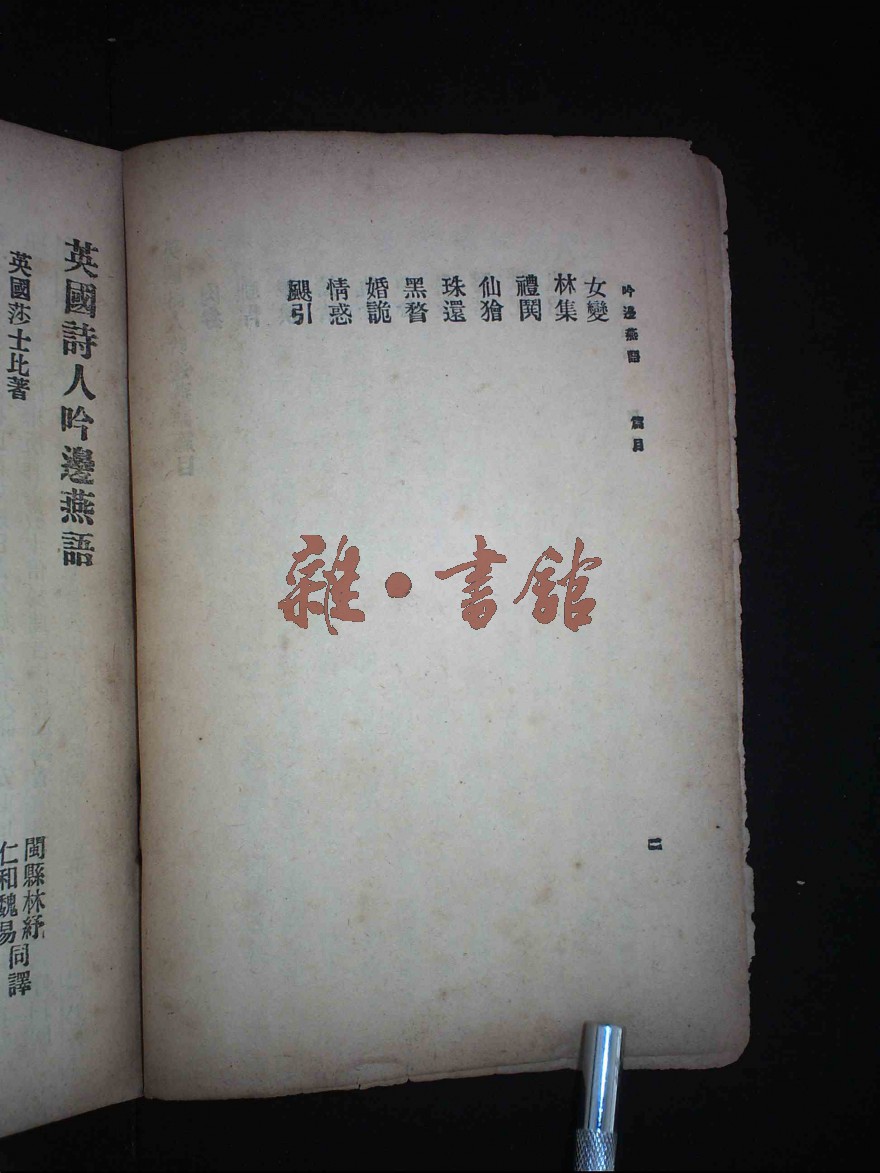 吟邊燕語 篇目
二
女變
林集
禮鬨
仙獪
珠還
黑瞀
婚詭
情惑
颶引
英國詩人吟邊燕語
英國莎士比著
閩縣林紓同譯
仁和魏易
雜·書館